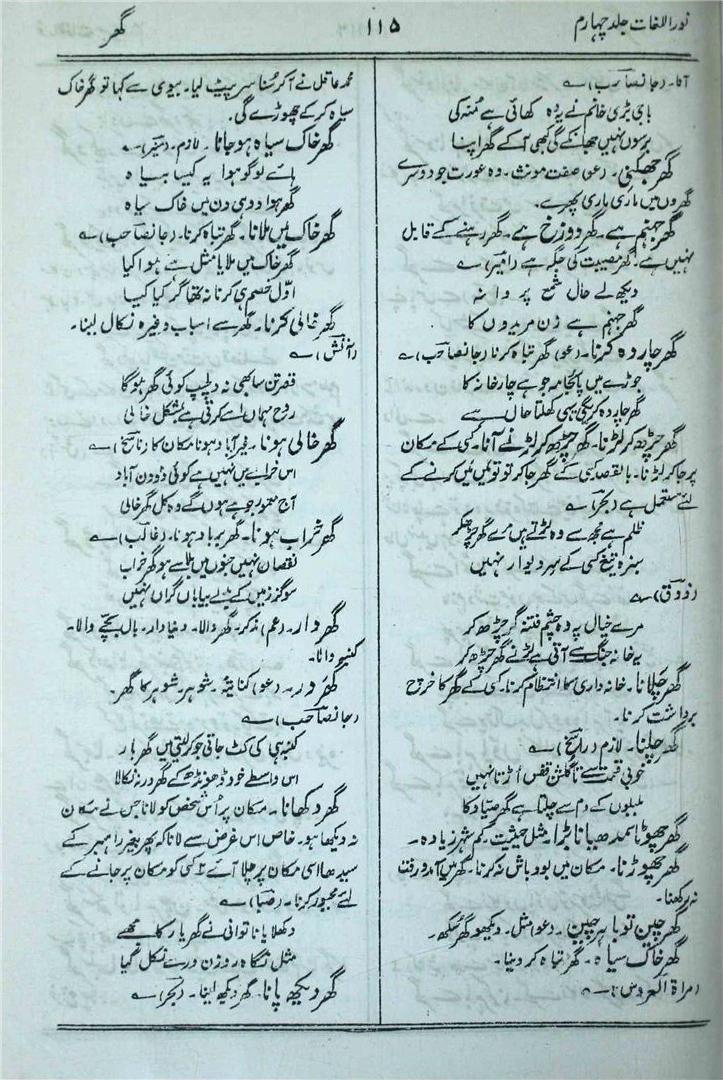 نور اللغات جلد چہارم
۱۱۵
گھر
آنا۔ (جانصاحب) ؎
باجی بڑی خانم نے یہ وہ کھائی ہے منہ کی
برسوں نہیں جھانکے گی کبھی آکے گھر اپنا
گھر جھکنی۔ (عو) صفت مونث۔ وہ عورت جو دوسرے
گھروں میں ماری ماری پھرے۔
گھر جہنم ہے۔ گھر دوزخ ہے۔ گھر رہنے کے قابل
نہیں ہے۔ گھر مصیبت کی جگہ ہے (امیر) ؎
دیکھ لے حال شمع پروانہ
گھر جہنم ہے زن مریدوں کا
گھر چار دہ کرنا۔ (عو) گھر تباہ کرنا (جانصاحب) ؎
جوڑے میں پائجامہ جو ہے چارخانہ کا
گھر چار دہ کریگی یہی کھلتا حال سے
گھر چڑھ کر لڑنا۔ گھر چڑھ کر لڑنے آنا۔ کسی کے مکان
پر جا کر لڑنا۔ بالقصد کسی کے گھر جا کر تو تو میں میں کرنے کے
لئے مستعمل ہے (بحر) ؎
ظلم ہے مجھ سے وہ لڑتے ہیں مرے گھر چڑھکر
سبزہ تیغ کسی کے سر دیوار نہیں
(ذوق) ؎
مرے خیال پہ وہ چشم فتنہ گر چڑھ کر
یہ خانہ جنگ ہے آتی ہے لڑنے گھر چڑھ کر
گھر چلانا۔ خانہ داری کا انتظام کرنا۔ کسی کے گھر کا خرچ
برداشت کرنا۔
گھر چلنا۔ لازم (راسخ) ؎
خوبی قسمت سے تا گلشن قفس اڑتا نہیں
بلبلوں کے دم سے چلتا ہے گھر صیاد کا
گھر چھوٹا سمدھیانا بڑا۔ مثل حیثیت کم شہر زیادہ۔
گھر چھوڑنا۔ مکان میں بود و باش نہ کرنا۔ گھر میں آمد و رفت
نہ رکھنا۔
گھر چین تو باہر چین۔ (عو) مثل۔ دیکھو گھر سکھ۔
گھر خاک سیاہ۔ گھر تباہ کر دینا۔
(مراۃ العروس) ؎
محمد عاقل نے آکر سنا سر پیٹ لیا۔ بیوی سے کہا تو گھر خاک
سیاہ کرکے چھوڑے گی۔
گھر خاک سیاہ ہو جانا۔ لازم۔ (میر) ؎
ہائے لوگو ہوا یہ کیسا بیاہ
گھر ہوا دو ہی دن میں خاک سیاہ
گھر خاک میں ملانا۔ گھر تباہ کرنا۔ (جانصاحب) ؎
گھر خاک میں ملایا مثل ہے ہوا کیا
اول خصم ہی کرنا نہ تھا گر کیا کیا
گھر خالی کرنا۔ گھر سے اسباب وغیرہ نکال لینا۔
(آتش) ؎
قصر تن سا بھی نہ دلچسپ کوئی گھر ہوگا
روح مہماں اسے کرتی ہے بمشکل خالی
گھر خالی ہونا۔ غیر آباد ہونا مکان کا (ناسخ) ؎
اس خرابے میں نہیں ہے کوئی دو دن آباد
آج معمور جو ہے ہوں گے وہ کل گھر خالی
گھر خراب ہونا۔ گھر برباد ہونا۔ (غالب) ؎
نقصان نہیں جنوں میں بلا سے ہو گھر خراب
سو گز زمیں کے بدلے بیاباں گراں نہیں
گھر دار۔ (عم) مذکر۔ گھر والا۔ دنیا دار۔ بال بچّے والا۔
کنبے والا۔
گھر در۔ (عو) کنایۃً۔ شوہر۔ شوہر کا گھر۔
(جانصاحب) ؎
کنبہ ہی کی کٹ جاتی جو کر لیتیں گھر بار
اس واسطے خود ڈھونڈھ کے گھر در نہ نکالا
گھر دکھانا۔ مکان پر اس شخص کو لانا جس نے مکان
نہ دیکھا ہو۔ خاص اس غرض سے لانا کہ پھر بغیر راہبر کے
سیدھا اسی مکان پر چلا آئے ؎ کسی کو مکان پر جانے کے
لئے مجبور کرنا۔ (صبا) ؎
دکھلایا ناتوانی نے گھر یار کا مجھے
مثل نگاہ روزن در سے نکل گیا
گھر دیکھ پانا۔ گھر دیکھ لینا۔ (بحر) ؎